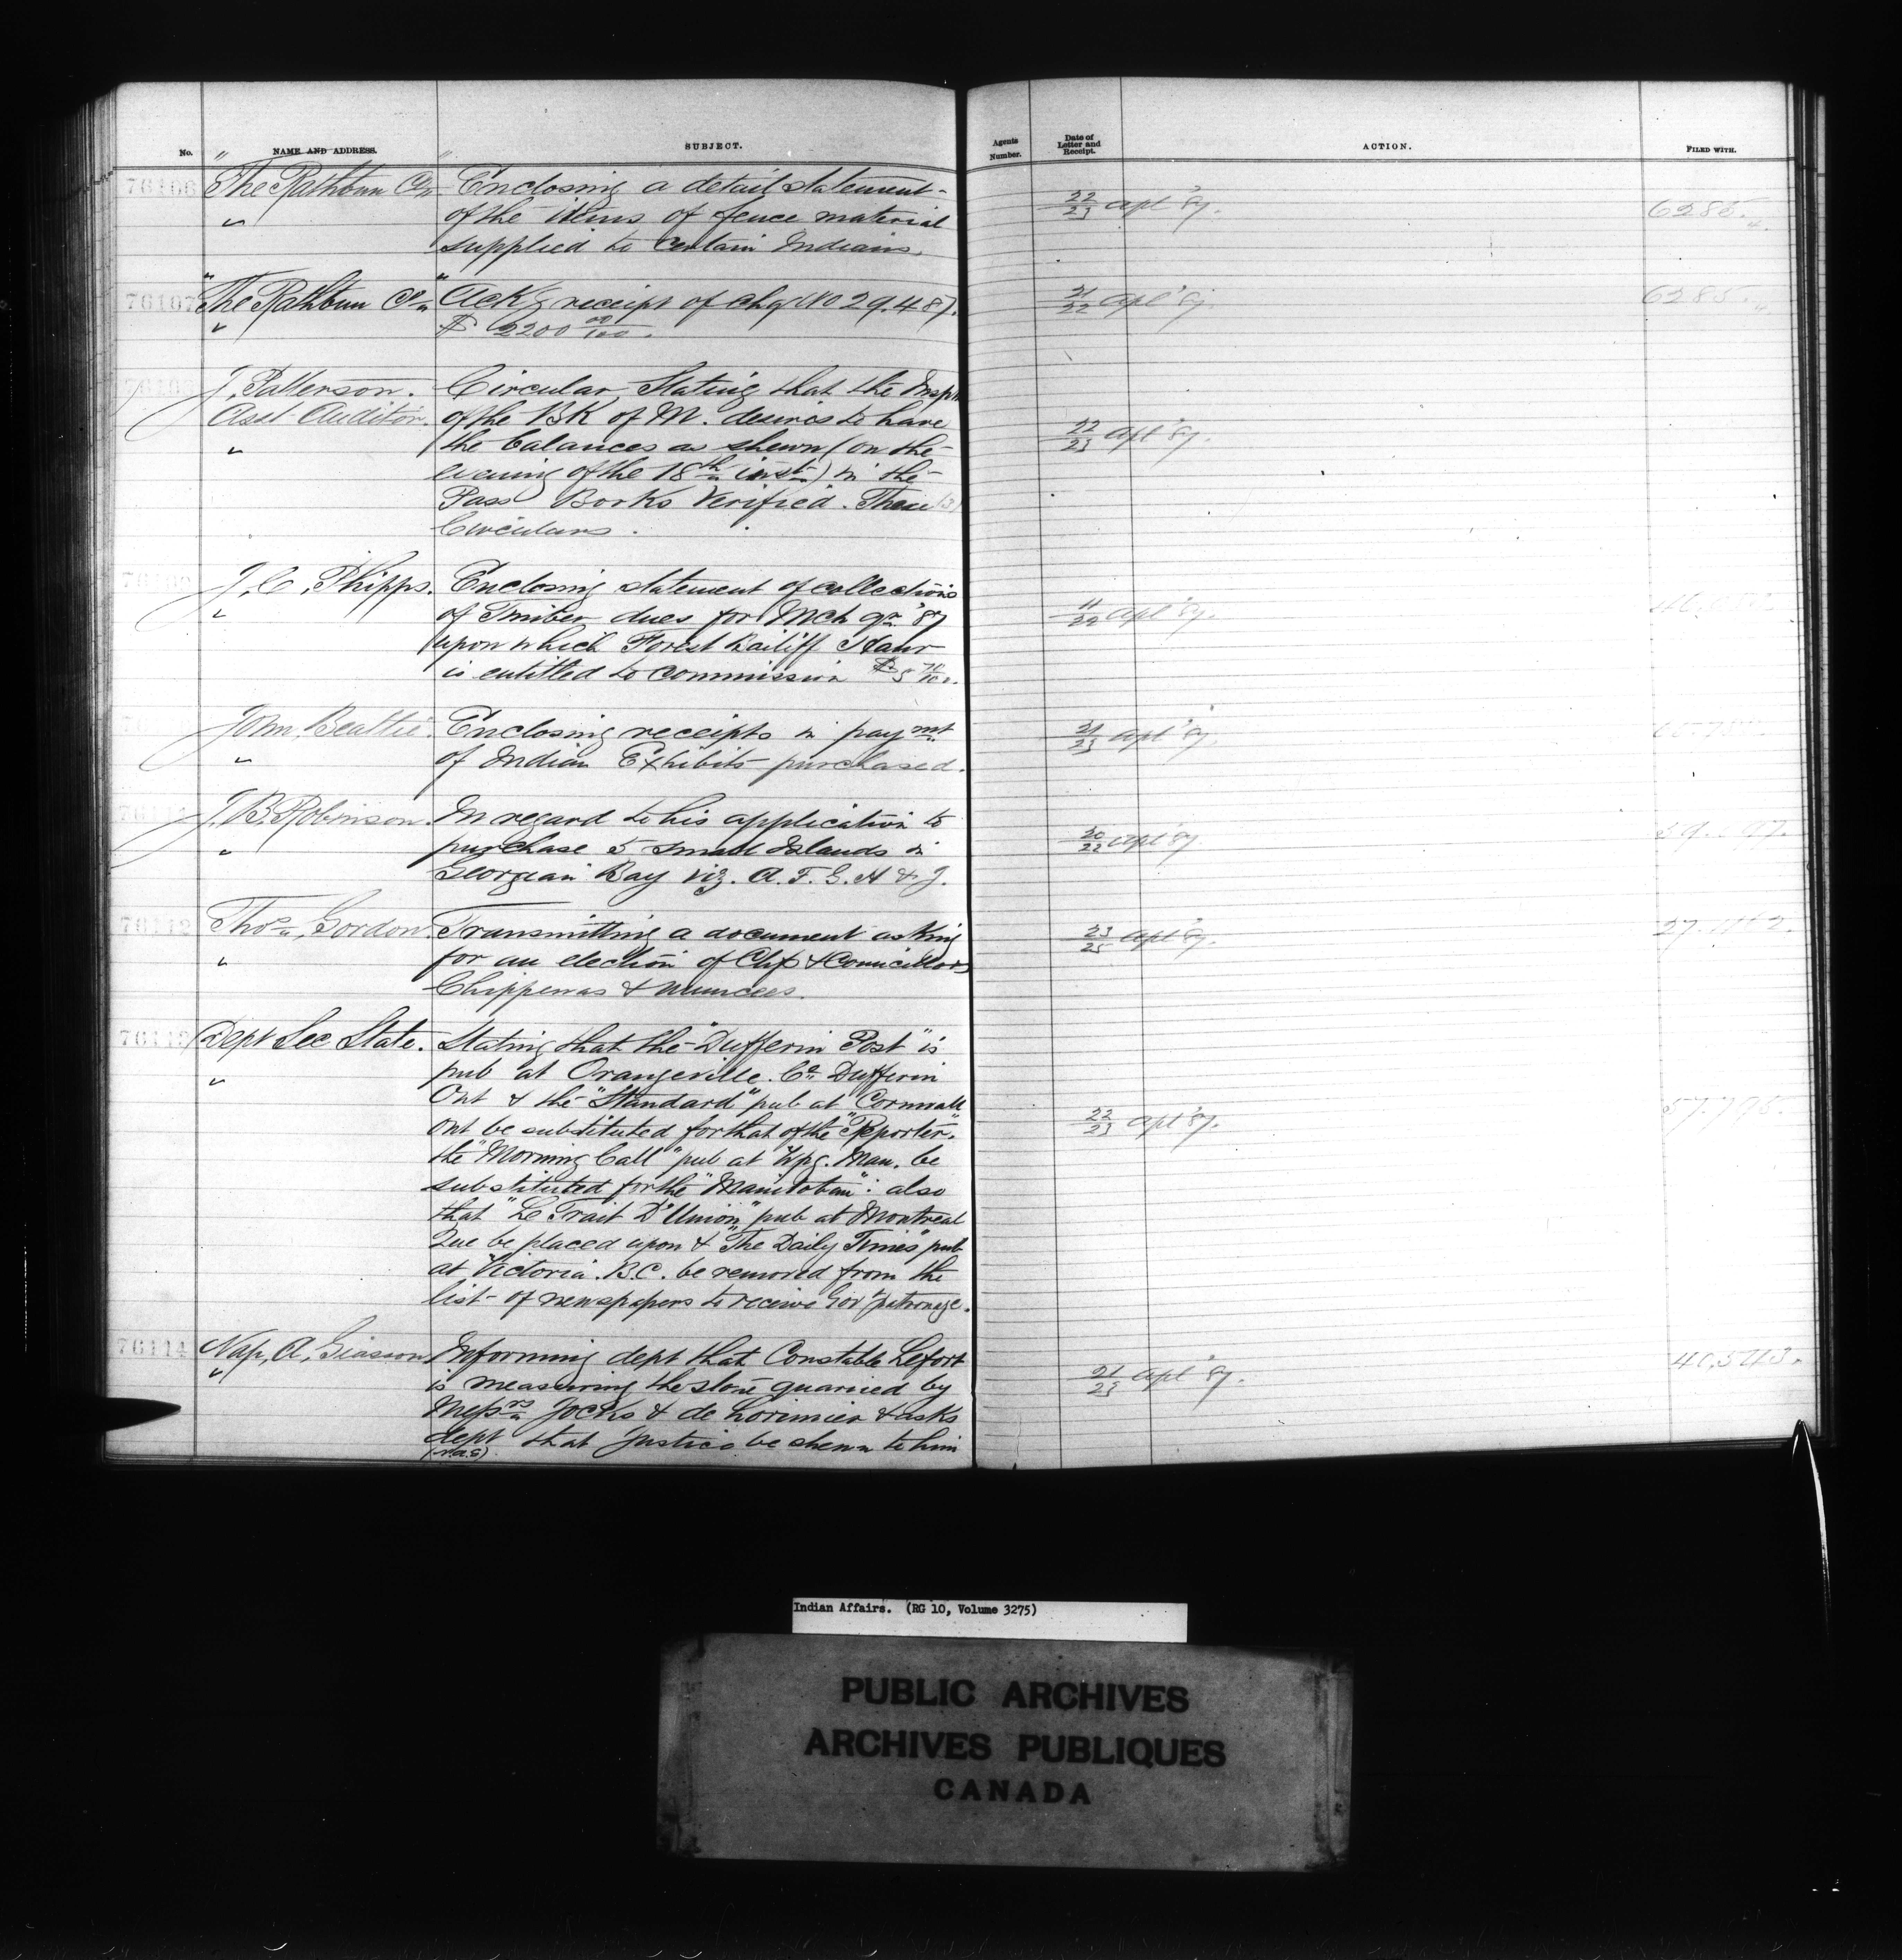 No. NAME AND ADDRESS. SUBJECT. Agents Number. Date of Letter and Receipt. ACTION. FILED WITH.
76106 The Rathbun Co Enclosing a detail statement 22/23 Apl '87. 6285.
of the items of fence material
supplied to certain Indians.
76107 The Rathbun Co Ack'g receipt of chq (No 29.487). 21/22 Apl '87. 6285.
$ 2200 00/100.
J. Patterson. Circular Stating that the Insp
Asst Auditor. of the BK of M. desires to have 22/23 Apl '87.
the balances as shewn (on the
evening of the 18th inst) in the
Pass Books Verified. Three (3)
Circulars.
J. C. Phipps. Enclosing statement of collections
of Timber dues for Mch qr '87 11/22 Apl '87.
upon which Forest Bailiff
is entitled to commission $5
John Beattie. Enclosing receipts in paymt 21/23 Apl '87.
of Indian Exhibits purchased.
J. B. Robinson. In regard to his application to 20/22 Apl '87.
purchase 5 small Islands in
Georgian Bay viz. A. F. G. H & J.
76112 Thos Gordon. Transmitting a document asking 23/25 Apl '87.
for an election of Chfs & Councillors
Chippewas & Muncees.
76113 Dept Sec State. Stating that the "Dufferin Post" is
pub at Orangeville. Co Dufferin
Ont & the "Standard" pub at "Cornwall"
Ont be substituted for that of the "Reporter". 22/23 Apl '87.
the "Morning Call" pub at Wpg. Man. be
substituted for the "Manitoban": also
that "Le Trait D'Union" pub at Montreal
Que be placed upon & "The Daily Times" pub
at Victoria. B.C. be removed from the
list of newspapers to receive Gov't patronage.
76114 Nap. A. Giasson Informing dept that Constable Lefort 21/23 Apl '87. 40,543.
is measuring the stone quarried by
Messrs Jocks & de Lorimier & asks
dept that justice be shewn to him
Indian Affairs. (RG 10, Volume 3275)
PUBLIC ARCHIVES
ARCHIVES PUBLIQUES
CANADA